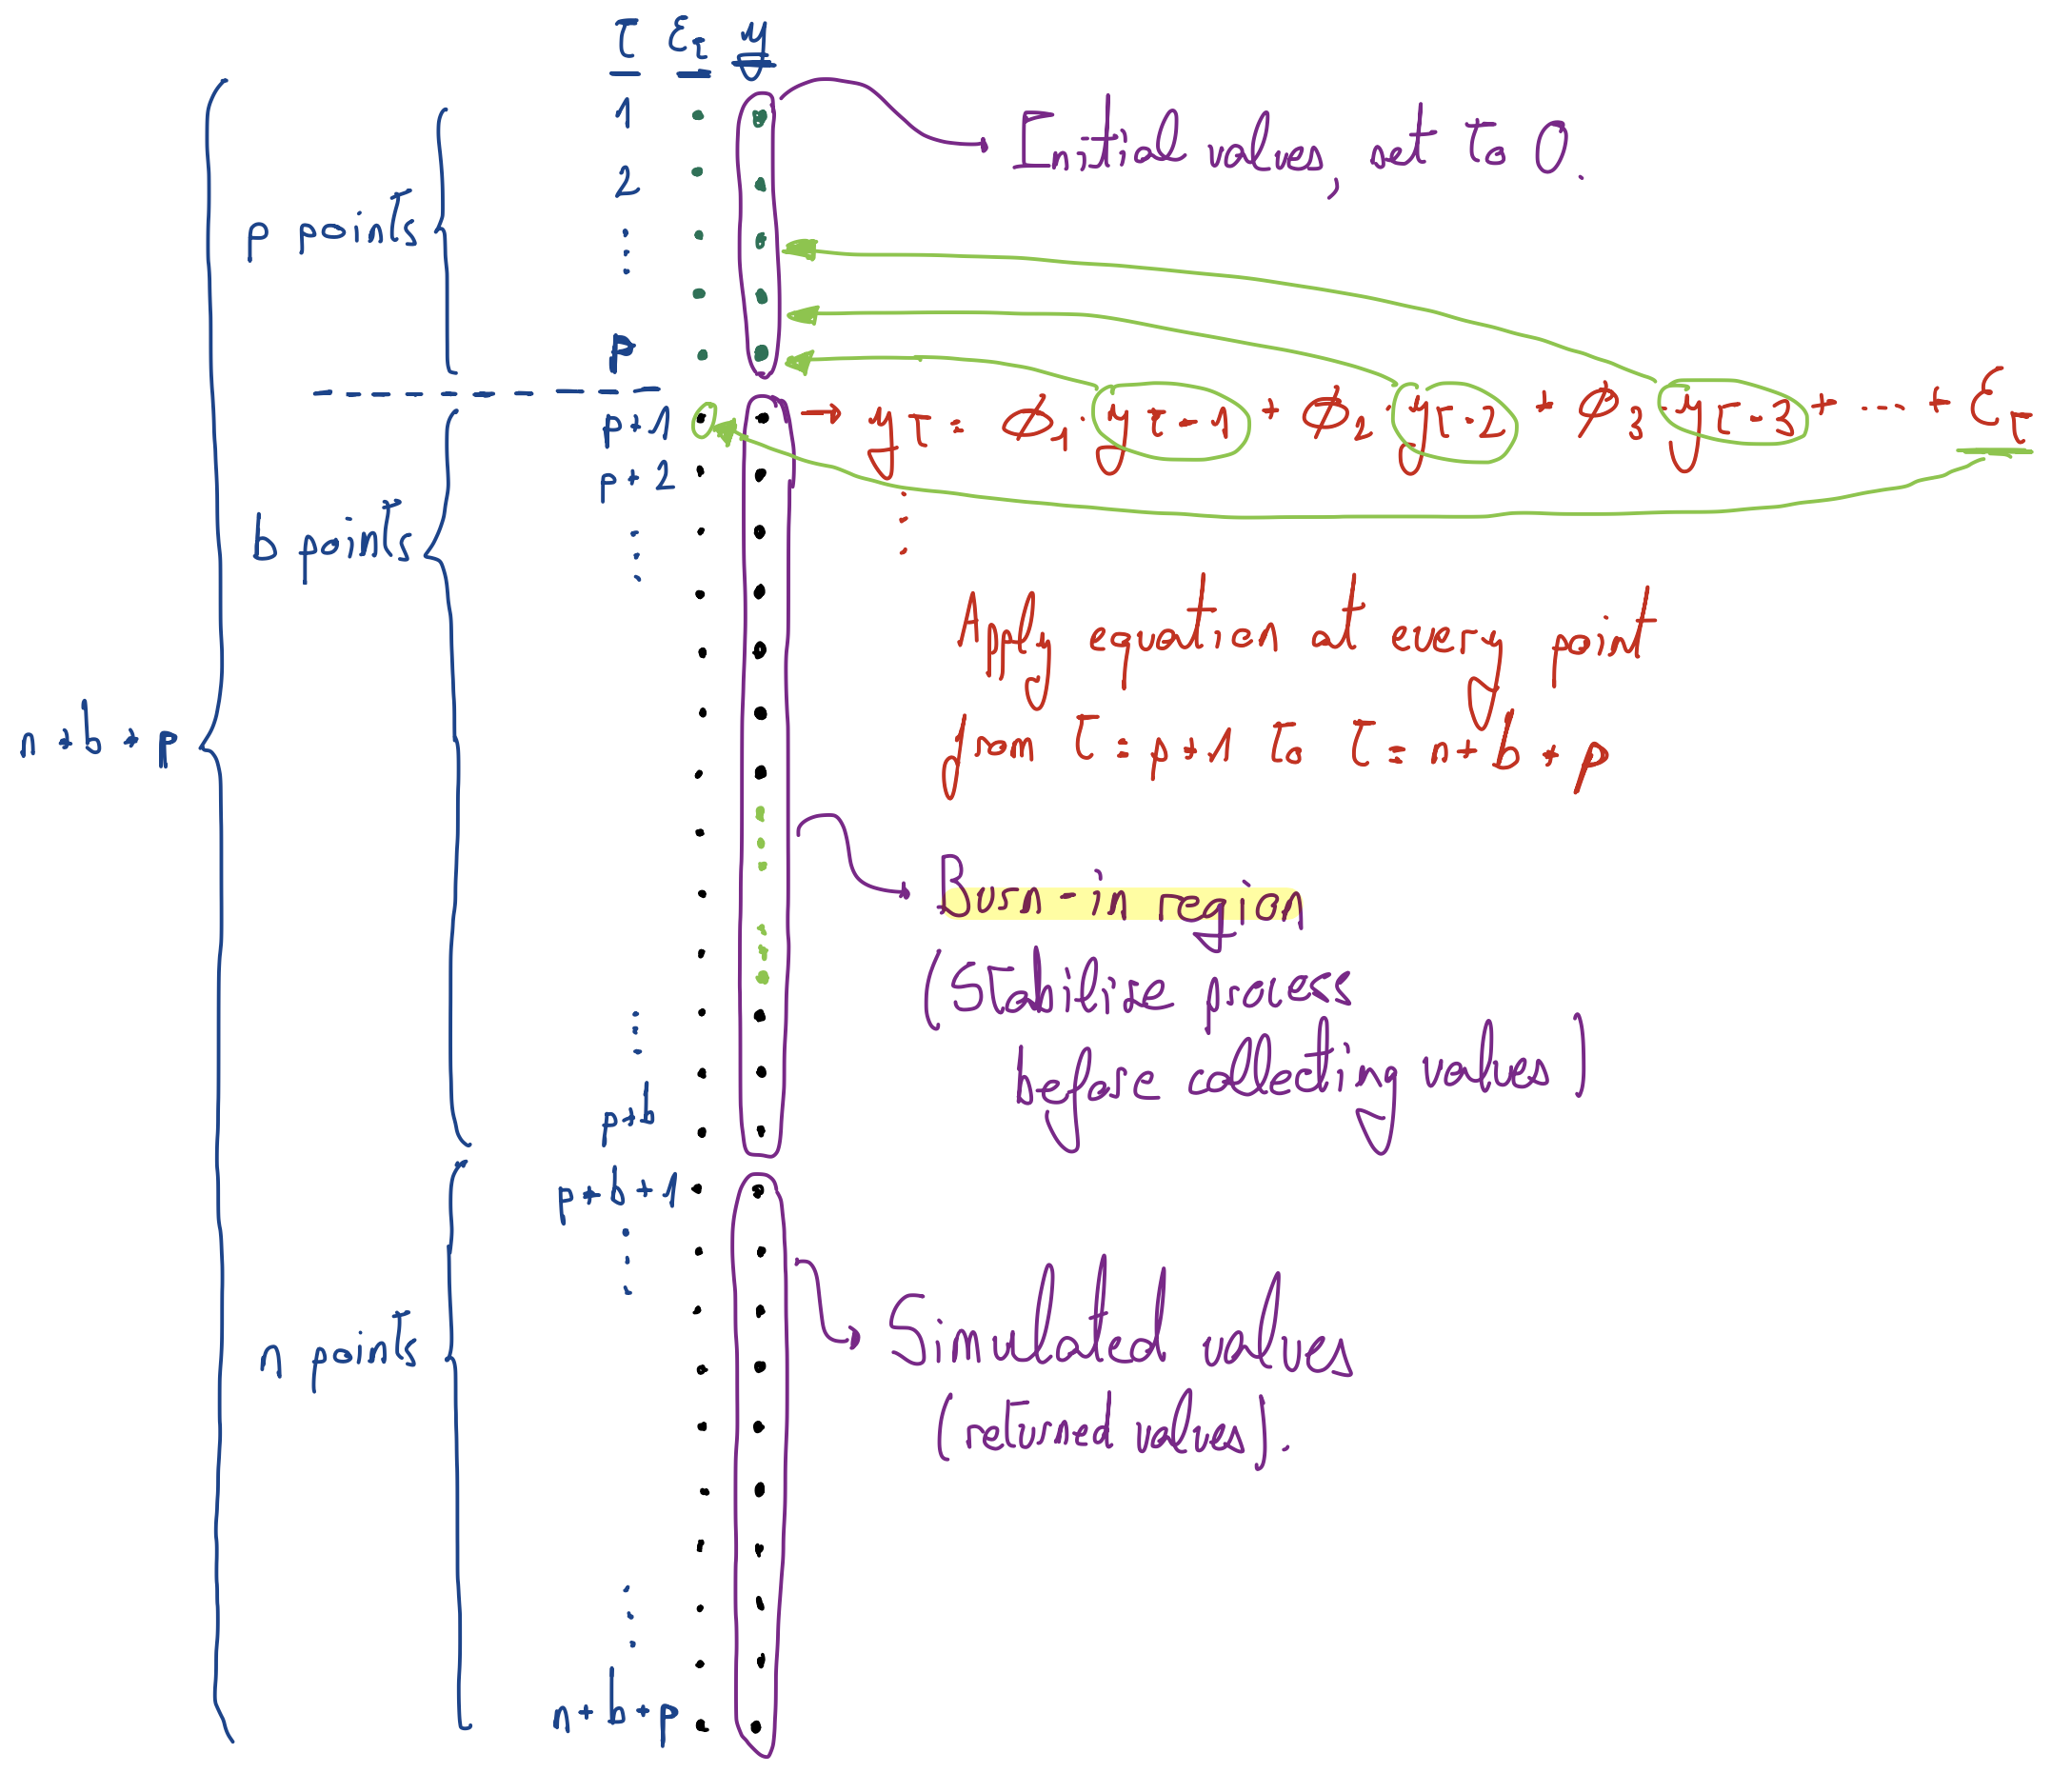 t εt y
1
Initial values, set to 0.
2
p points
⋮
p
p+1 → yt = ø1·yt-1 + ø2·yt-2 + ø3·yt-3 + ... + εt
p+2
⋮
b points
⋮
Apply equation at every point
from t=p+1 to t=n+b+p
n+b+p
Burn-in region
(Stabilise process
before collecting values)
⋮
p+b
p+b+1
⋮
n points
Simulated values
(returned values).
⋮
n+b+p